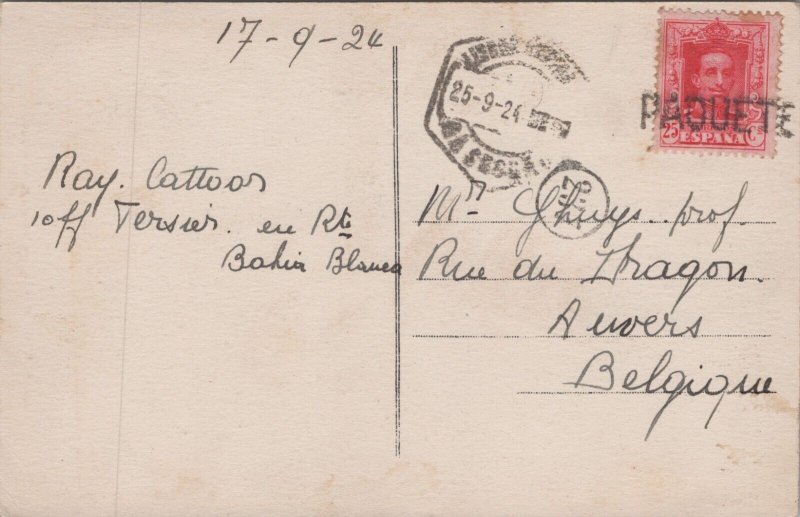 17-9-24
25-9-24
2ª SECÇÃO
PAQUETE
25 Cs
ESPAÑA
Ray. Cattoor
1off Tersier. en Rte
Bahia Blanca
Mr Ghuys. prof.
Rue du Dragon.
Anvers
Belgique